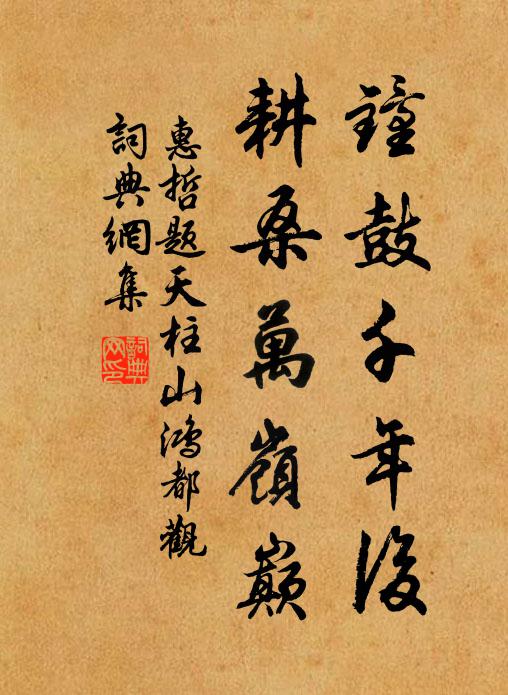 鐘鼓千年後
耕桑萬嶺巔
惠哲題天柱山鴻都觀
詞典網集
詞典網印